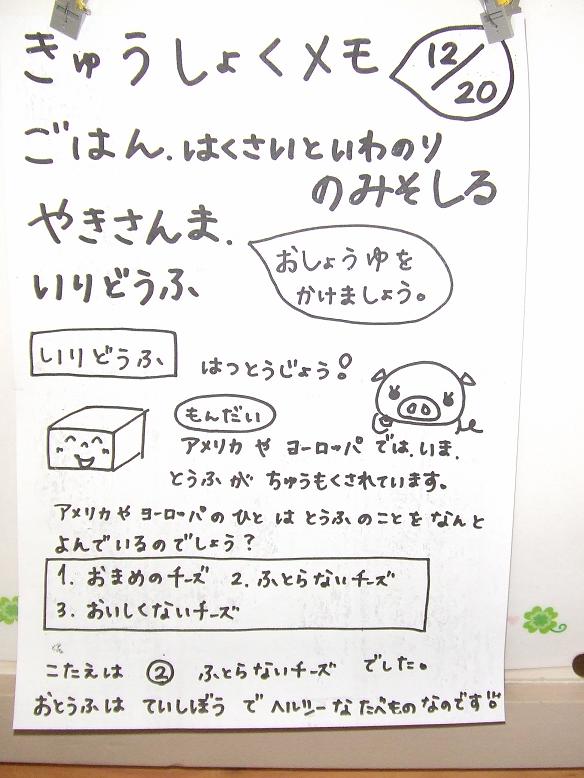 きゅうしょくメモ 12/20
ごはん.はくさいといわのり
のみそしる
やきさんま.
おしょうゆを
かけましょう。
いりどうふ
いりどうふ はつとうじょう!
もんだい
アメリカ や ヨーロッパ では.いま.
とうふ が ちゅうもくされています。
アメリカや ヨーロッパの ひと は とうふ のことを なんと
よんでいるのでしょう?
1. おまめのチーズ 2. ふとらないチーズ
3. おいしくないチーズ
こたえは ② ふとらないチーズ でした。
おとうふは ていしぼう で ヘルシーな たべものなのです!!